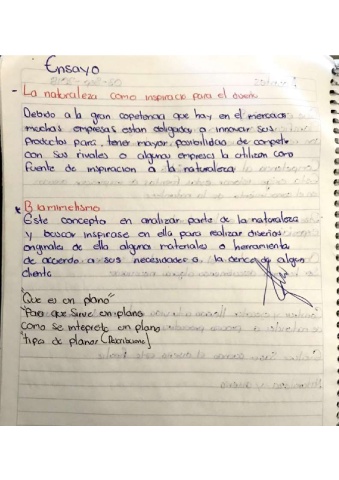 Ensayo
- La naturaleza como inspiracio para el diseño
Debido a la gran copetencia que hay en el mercado
muchas empresas estan obligadas a innovar sus
productos para tener mayor posibilidad de competir
con sus rivales o algunas empresas la utilizan como
fuente de inspiracion a la naturaleza
Biomimetismo
Este concepto en analizar parte de la naturaleza
y buscar inspirase en ella para realizar diseños
originales de ella algunos materiales o herramienta
de acuerdo a sus necesidades o la de algun
cliente
"Que es un plano"
"Para que sirve un plano
como se intepreta un plano
"tipos de planos (Describame)